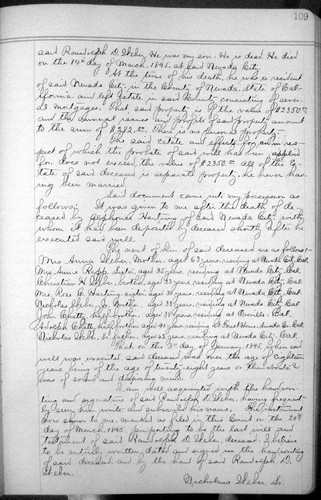 109
said Randolph D. Skebe. He was my son. He is dead. He died
on the 14th day of March, 1895, at said Nevada City.
At the time of his death, he was a resident
of said Nevada City, in the County of Nevada, State of Cal-
ifornia and left estate in said County consisting of sever-
al mortgages. That said property is of the value of $2350.00
and the annual issues and profits of said property amount
to the sum of $282.00. There is no personal property.
The said estate and effects, for or in res-
pect of which the probate of said will has been applied
for, does not exceed the value of $2350.00 All of the es-
tate of said deceased is separate property, he never hav-
ing been married.
Said document came into my possession as
follows: It was given to me after the death of de-
ceased by Alphonse Hartung of said Nevada City, with
whom it had been deposited by deceased shortly after he
executed said will.
The next of kin of said deceased are as follows:
Mrs Anna Skebe, Mother, aged 63 years, residing at Nevada City, Cal.
Mrs Annie Rapp, sister, aged 35 years, residing at Nevada City, Cal.
Christian H. Skebe, brother, aged 33 years, residing at Nevada City, Cal.
Mrs. Rose E. Hartung, sister, aged years, residing at Nevada City, Cal.
Nicholas Skebe, Jr. brother, aged years, residing at Nevada City, Cal.
John Chatty, half brother, aged years, residing at Oroville, Cal.
Adolph Chatty, half brother, aged years, residing at Nevada Co. Cal.
Nicholas Skebe, Sr. father, aged 62 years, residing at Nevada City, Cal.
That on the day of January, 1895, when said
will was executed, said deceased was over the age of eighteen
years, being of the age of twenty-eight years or thereabouts &
was of sound and disposing mind.
I am well acquainted with the handwri-
ting and signature of said Randolph D. Skebe, having frequent-
ly seen him write and subscribe his name. The instrument
now shown to me, marked as filed in this Court on the 20th
day of March, 1895, purporting to be the last will and
testament of said Randolph D. Skebe, deceased, I believe
to be entirely written, dated and signed in the handwriting
of said deceased and by the hand of said Randolph D.
Skebe.
Nicholas Skebe Sr.